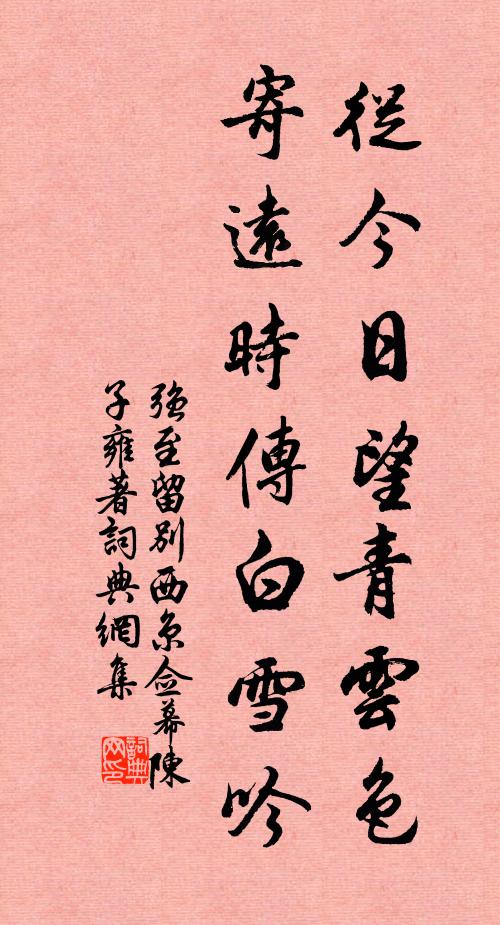 從今日望青雲色
寄遠時傳白雪吟
強至留別西京僉幕陳
子雍著詞典網集
詞典網印